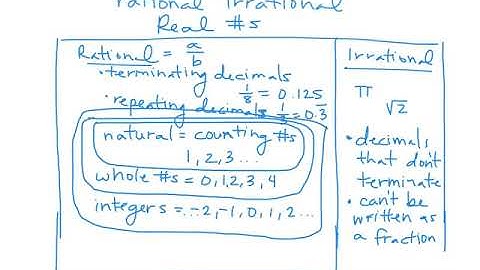 rational irrational
Real #s
Rational = a/b
• terminating decimals
1/8 = 0.125
• repeating decimals 1/3 = 0.3̅
natural = counting #s
1, 2, 3 ...
whole #s = 0, 1, 2, 3, 4
integers = ... -2, -1, 0, 1, 2 ...
Irrational
π
√2
• decimals
that don't
terminate
• can't be
written as
a fraction